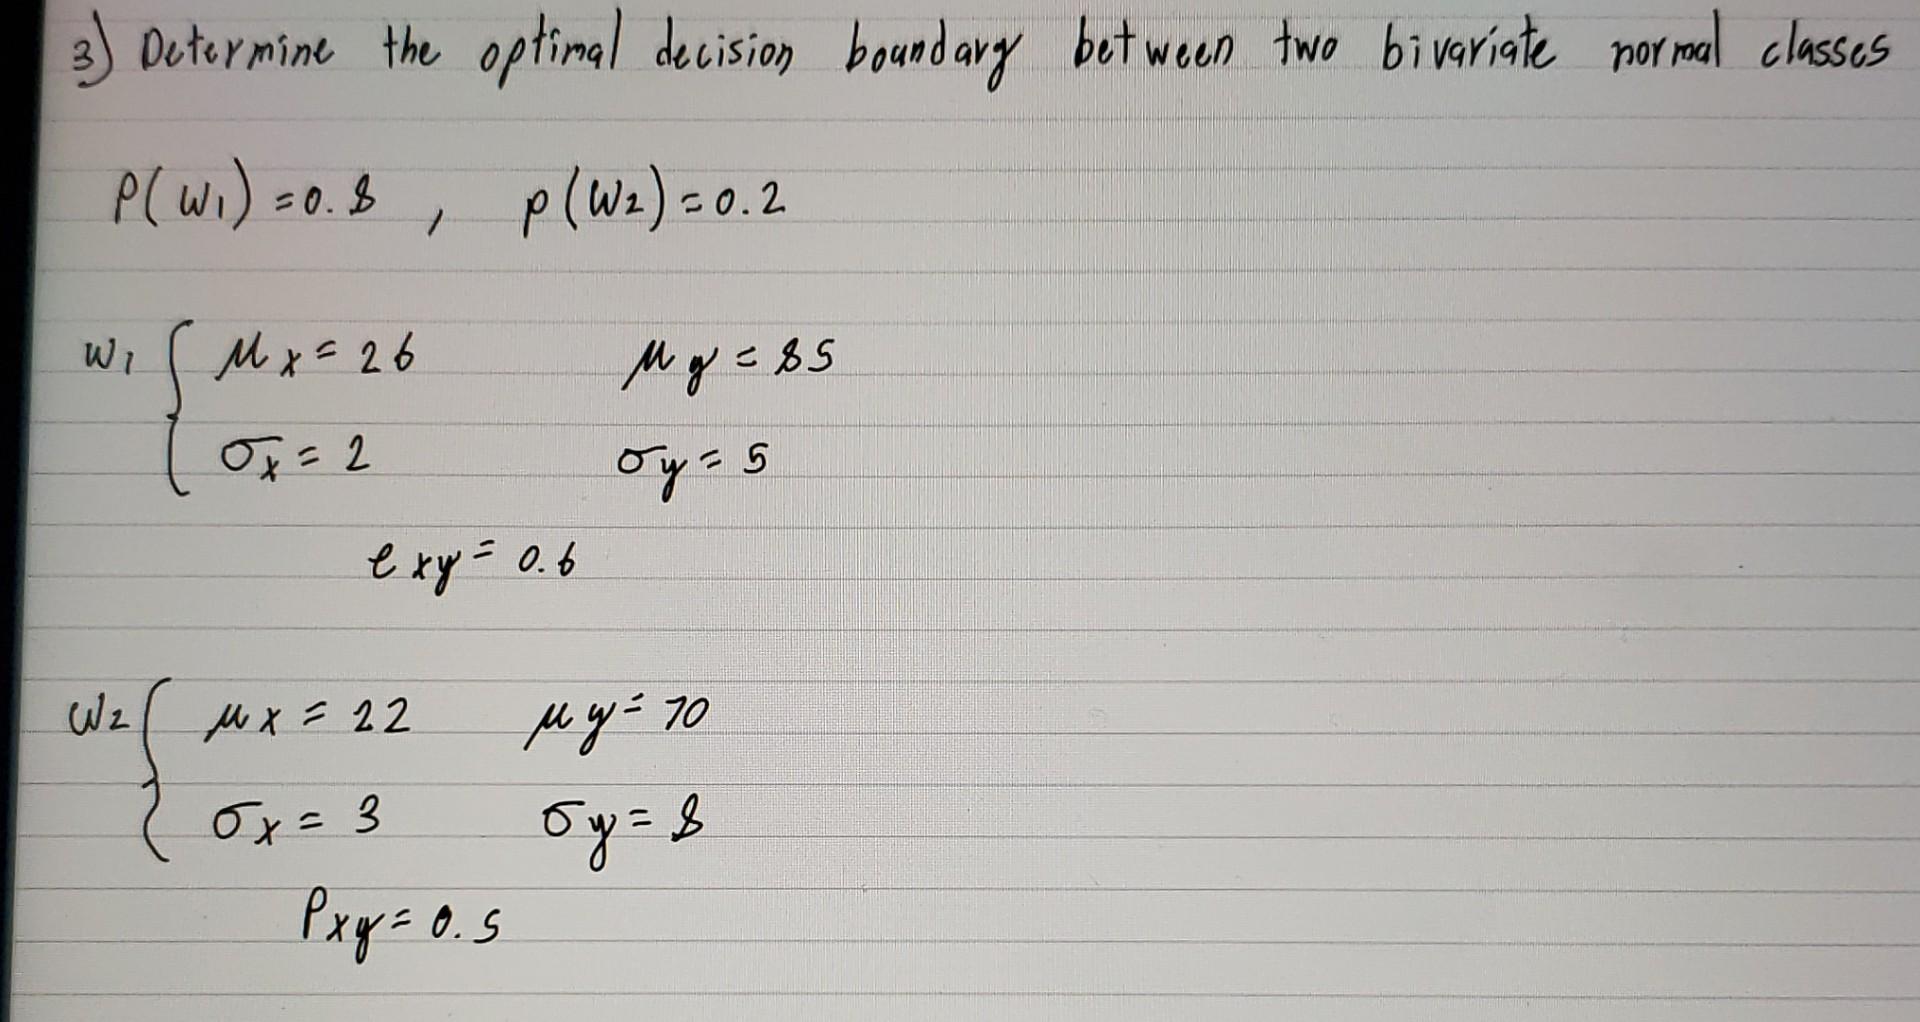 3) Determine the optimal decision boundary between two bivariate normal classes
P(W1) = 0.8 , p(W2) = 0.2
W1 { μx = 26 μy = 85
σx = 2 σy = 5
ρxy = 0.6
W2 { μx = 22 μy = 70
σx = 3 σy = 8
Pxy = 0.5